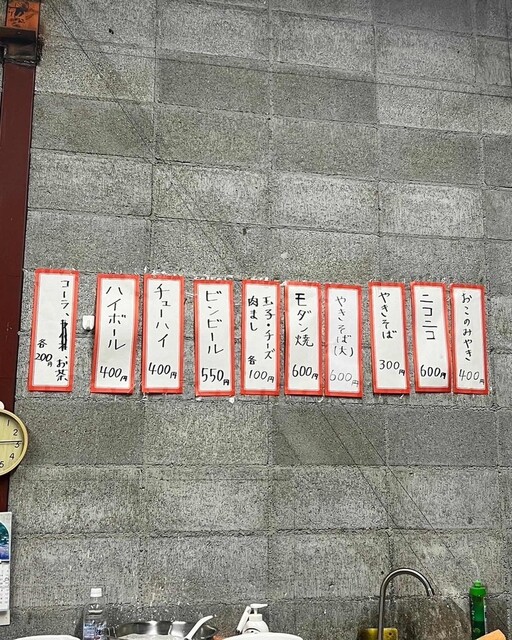 おこのみやき
400円
ニコニコ
600円
やきそば
300円
やきそば(大)
600円
モダン焼
600円
玉子・チーズ
肉まし
各
100円
ビンビール
550円
チューハイ
400円
ハイボール
400円
コーラ、
、お茶
各
200円